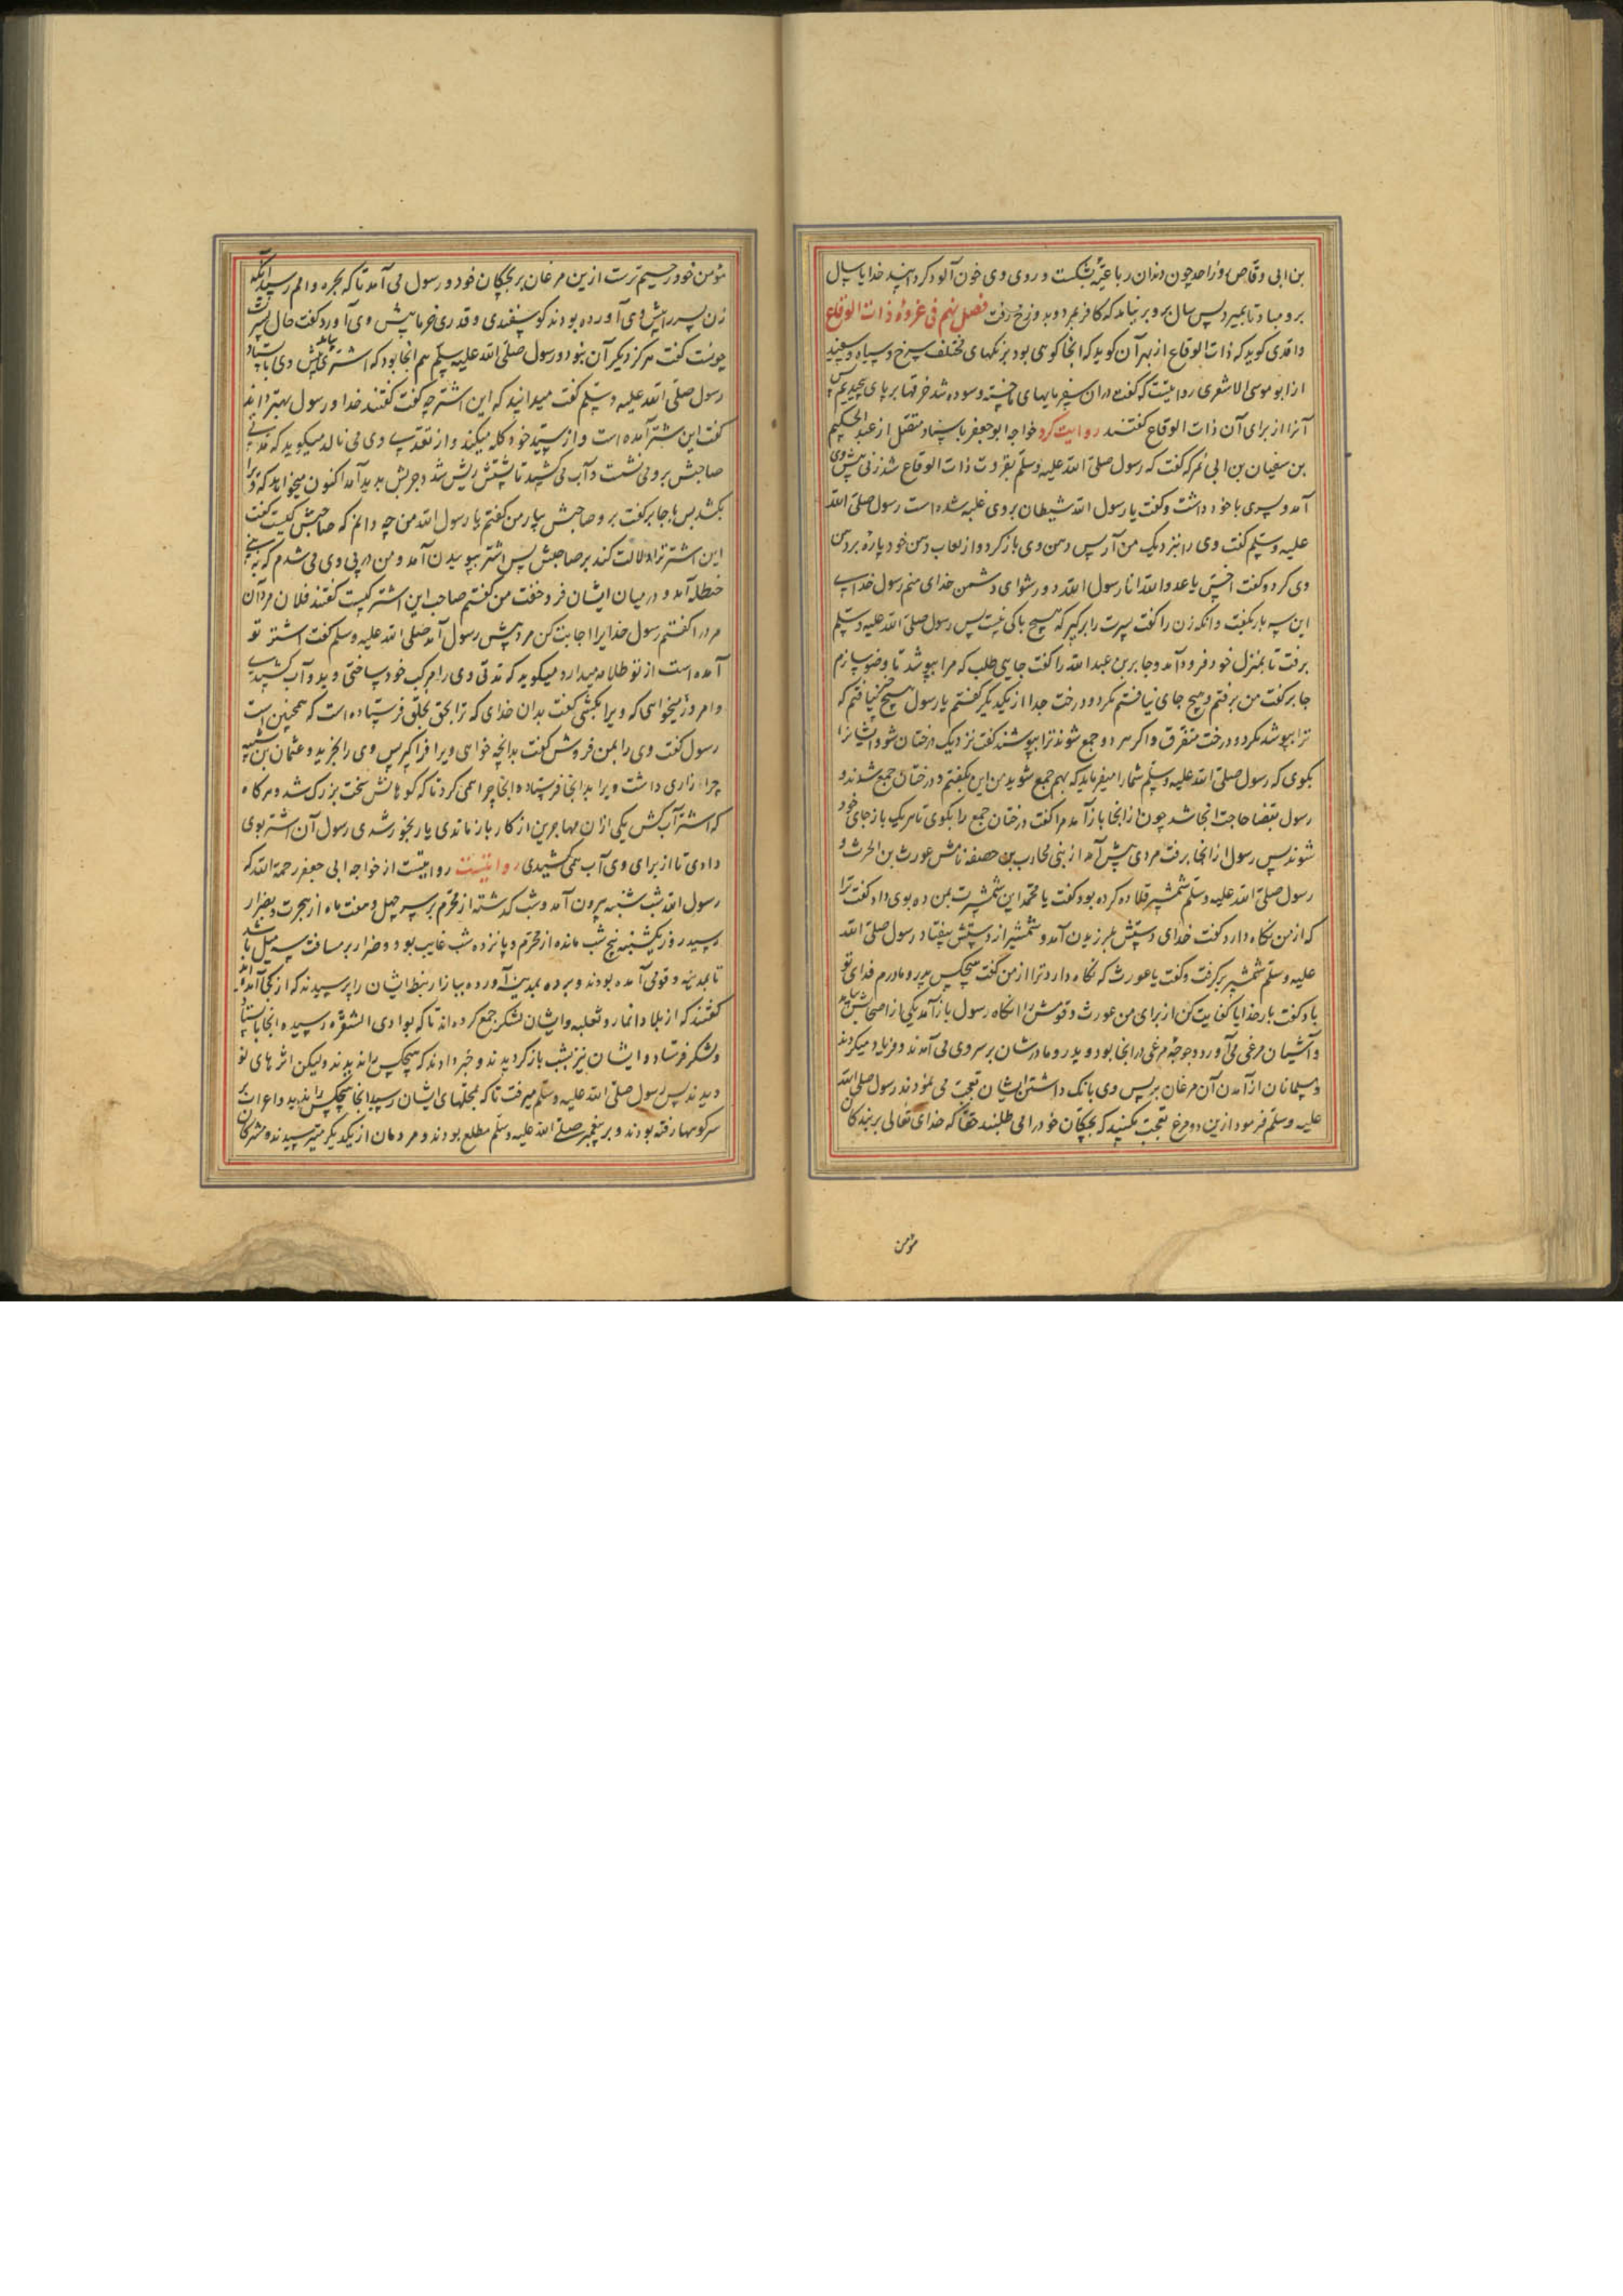 بن ابی وقاص روز احد چون دندان رباعیه بشکست و روی وی خون آلود کرد خدایا سال
برو مباد تا بمیرد پس سال برو بر نیامد که کافر بمرد و بدوزخ رفت فصل نهم فی غزوة ذات الوقاع
واقدی کوید که ذات الوقاع از بهر آن کوید که انجا کوهی بود برنکهای مختلف سرخ و سیاه و سفید
از ابو موسی الاشعری روایتست که کفت در ان سفر پایهای ما خسته و سوده شد خرقها بر پای پیچیدیم پس
آنرا از برای آن ذات الوقاع کفتند روایت کرد خواجه ابو جعفر باسناد متصل از عبد الحکیم
بن سفیان بن ابی نمر که کفت که رسول صلی الله علیه وسلم بغزوت ذات الوقاع شد زنی پیش وی
آمد و پسری با خود داشت و کفت یا رسول الله شیطان بر وی غلبه شده است رسول صلی الله
علیه وسلم کفت وی را نزدیک من آر پس دهن وی باز کرد و از لعاب دهن خود پاره بر دهن
وی کرد و کفت اخس یا عدو الله انا رسول الله دور شو ای دشمن خدای منم رسول خدای
این سه بار بکفت و انکه زن را کفت پسرت را برکیر که هیچ باکی نیست پس رسول صلی الله علیه وسلم
برفت تا بمنزل خود فرود آمد و جابر بن عبد الله را کفت جایی طلب که مرا بپوشد تا وضو سازم
جابر کفت من برفتم و هیچ جای نیافتم مکر دو درخت جدا از یکدیکر کفتم یا رسول هیچ نیافتم که
ترا بپوشد مکر دو درخت متفرق و اکر هر دو جمع شوند ترا بپوشند کفت نزدیک درختان شو و ایشانرا
بکوی که رسول صلی الله علیه وسلم شما را میفرماید که بهم جمع شوید من این بکفتم و درختان جمع شدند و
رسول بقضا حاجت انجا شد چون از انجا باز آمد مرا کفت درختان جمع را بکوی تا هر یک باز جای خود
شوند پس رسول از انجا برفت مردی پیش آمد از بنی محارب بن حصفه نامش عورث بن الحرث و
رسول صلی الله علیه وسلم شمشیر قلاده کرده بود کفت یا محمد این شمشیرت بمن ده بوی داد کفت ترا
که از من نکاه دارد کفت خدای دستش بلرزیدن آمد و شمشیر از دستش بیفتاد رسول صلی الله
علیه وسلم شمشیر برکرفت و کفت یا عورث که نکاه دارد ترا از من کفت هیچکس پدر و مادرم فدای تو
باد کفت بار خدایا کفایت کن از برای من عورث و قومش را انکاه رسول باز آمد یکی از اصحابش بیامد
و آشیان مرغی می آورد و جوجه مرغی در انجا بود و پدر و مادرشان بر سر وی می آمدند و فریاد میکردند
و مسلمانان از آمدن آن مرغان بر پس وی بانک داشتن ایشان تعجب می نمودند رسول صلی الله
علیه وسلم فرمود ازین دو مرغ تعجب مکنید که بچکان خود را می طلبند حقا که خدای تعالی بر بندکان
مؤمن
مؤمن خود رحیم ترست ازین مرغان بر بچکان خود و رسول می آمد تا که بحره و الم رسید آنکه
زن پسر را پیش وی آورده بودند کوسفندی و قدری خرما پیش وی آورد کفت حال پسرت
چونست کفت هرکز دیکر آن نبود و رسول صلی الله علیه وسلم هم انجا بود که اشتری پیش وی بیامد باستاد
رسول صلی الله علیه وسلم کفت میدانید که این اشتر چه کفت کفتند خدا و رسول بهتر دانند
کفت این شتر آمده است و از سید خود کله میکند و از تعدی وی می نالد میکوید که مدتی
صاحبش بر وی نشست و آب کشید تا پشتش ریش شد و جربش پدید آمد اکنون میخواهد که ویرا
بکشد پس با جابر کفت برو صاحبش بیار من کفتم یا رسول الله من چه دانم که صاحبش کیست کفت
این اشتر ترا دلالت کند بر صاحبش پس اشتر بپوییدن آمد و من در پی وی می شدم که به بنی
خنطله آمد و در میان ایشان فرو خفت من کفتم صاحب این اشتر کیست کفتند فلان مرد آن
مرد را کفتم رسول خدایرا اجابت کن مرد پیش رسول آمد صلی الله علیه وسلم کفت اشتر تو
آمده است از تو ظلامه میدارد میکوید که مدتی وی را مرکب خود ساختی و بدو آب کشیدی
و امروز میخواهی که ویرا بکشی کفت بدان خدای که ترا بحق بخلق فرستاده است که همچنین است
رسول کفت وی را بمن فروش کفت بدانچه خواهی ویرا فراکیر پس وی را بخرید و عثمان بن
چرازاری داشت ویرا بدانجا فرستاد و انجا چرا همی کرد تا که کوهانش سخت بزرک شد و هرکاه
که اشتر آب کش یکی از ان مهاجرین از کار باز ماندی یا رنجور شدی رسول آن اشتر بوی
دادی تا از برای وی آب همی کشیدی روایتست روایتست از خواجه ابی جعفر رحمة الله که
رسول الله شب شنبه بیرون آمد و شب کذشته از محرم بر سر چهل و هفت ماه از هجرت و بضرار
رسید روز یکشنبه پنج شب مانده از محرم و پانزده شب غایب بود و ضرار بر مسافت سه میل باشد
تا بمدینه و قومی آمده بودند و برده بمدینه آورده ببازار نبط ایشان را پرسیدند که از کجا آمده اید
کفتند که از بلاد انمار و ثعلبه و ایشان لشکر جمع کرده اند تا که بوادی الشقره رسیده انجا باستاد
و لشکر فرستاد و ایشان نیز بشب باز کردیدند و خبر دادند که هیچکس را ندیدند ولیکن اثرهای نو
دیدند پس رسول صلی الله علیه وسلم میرفت تا که بمحلتهای ایشان رسید انجا هیچکس را ندید و اعراب بر
سر کوهها رفته بودند و بر پیغمبر صلی الله علیه وسلم مطلع بودند و مردمان از یکدیکر میترسیدند و مشرکان